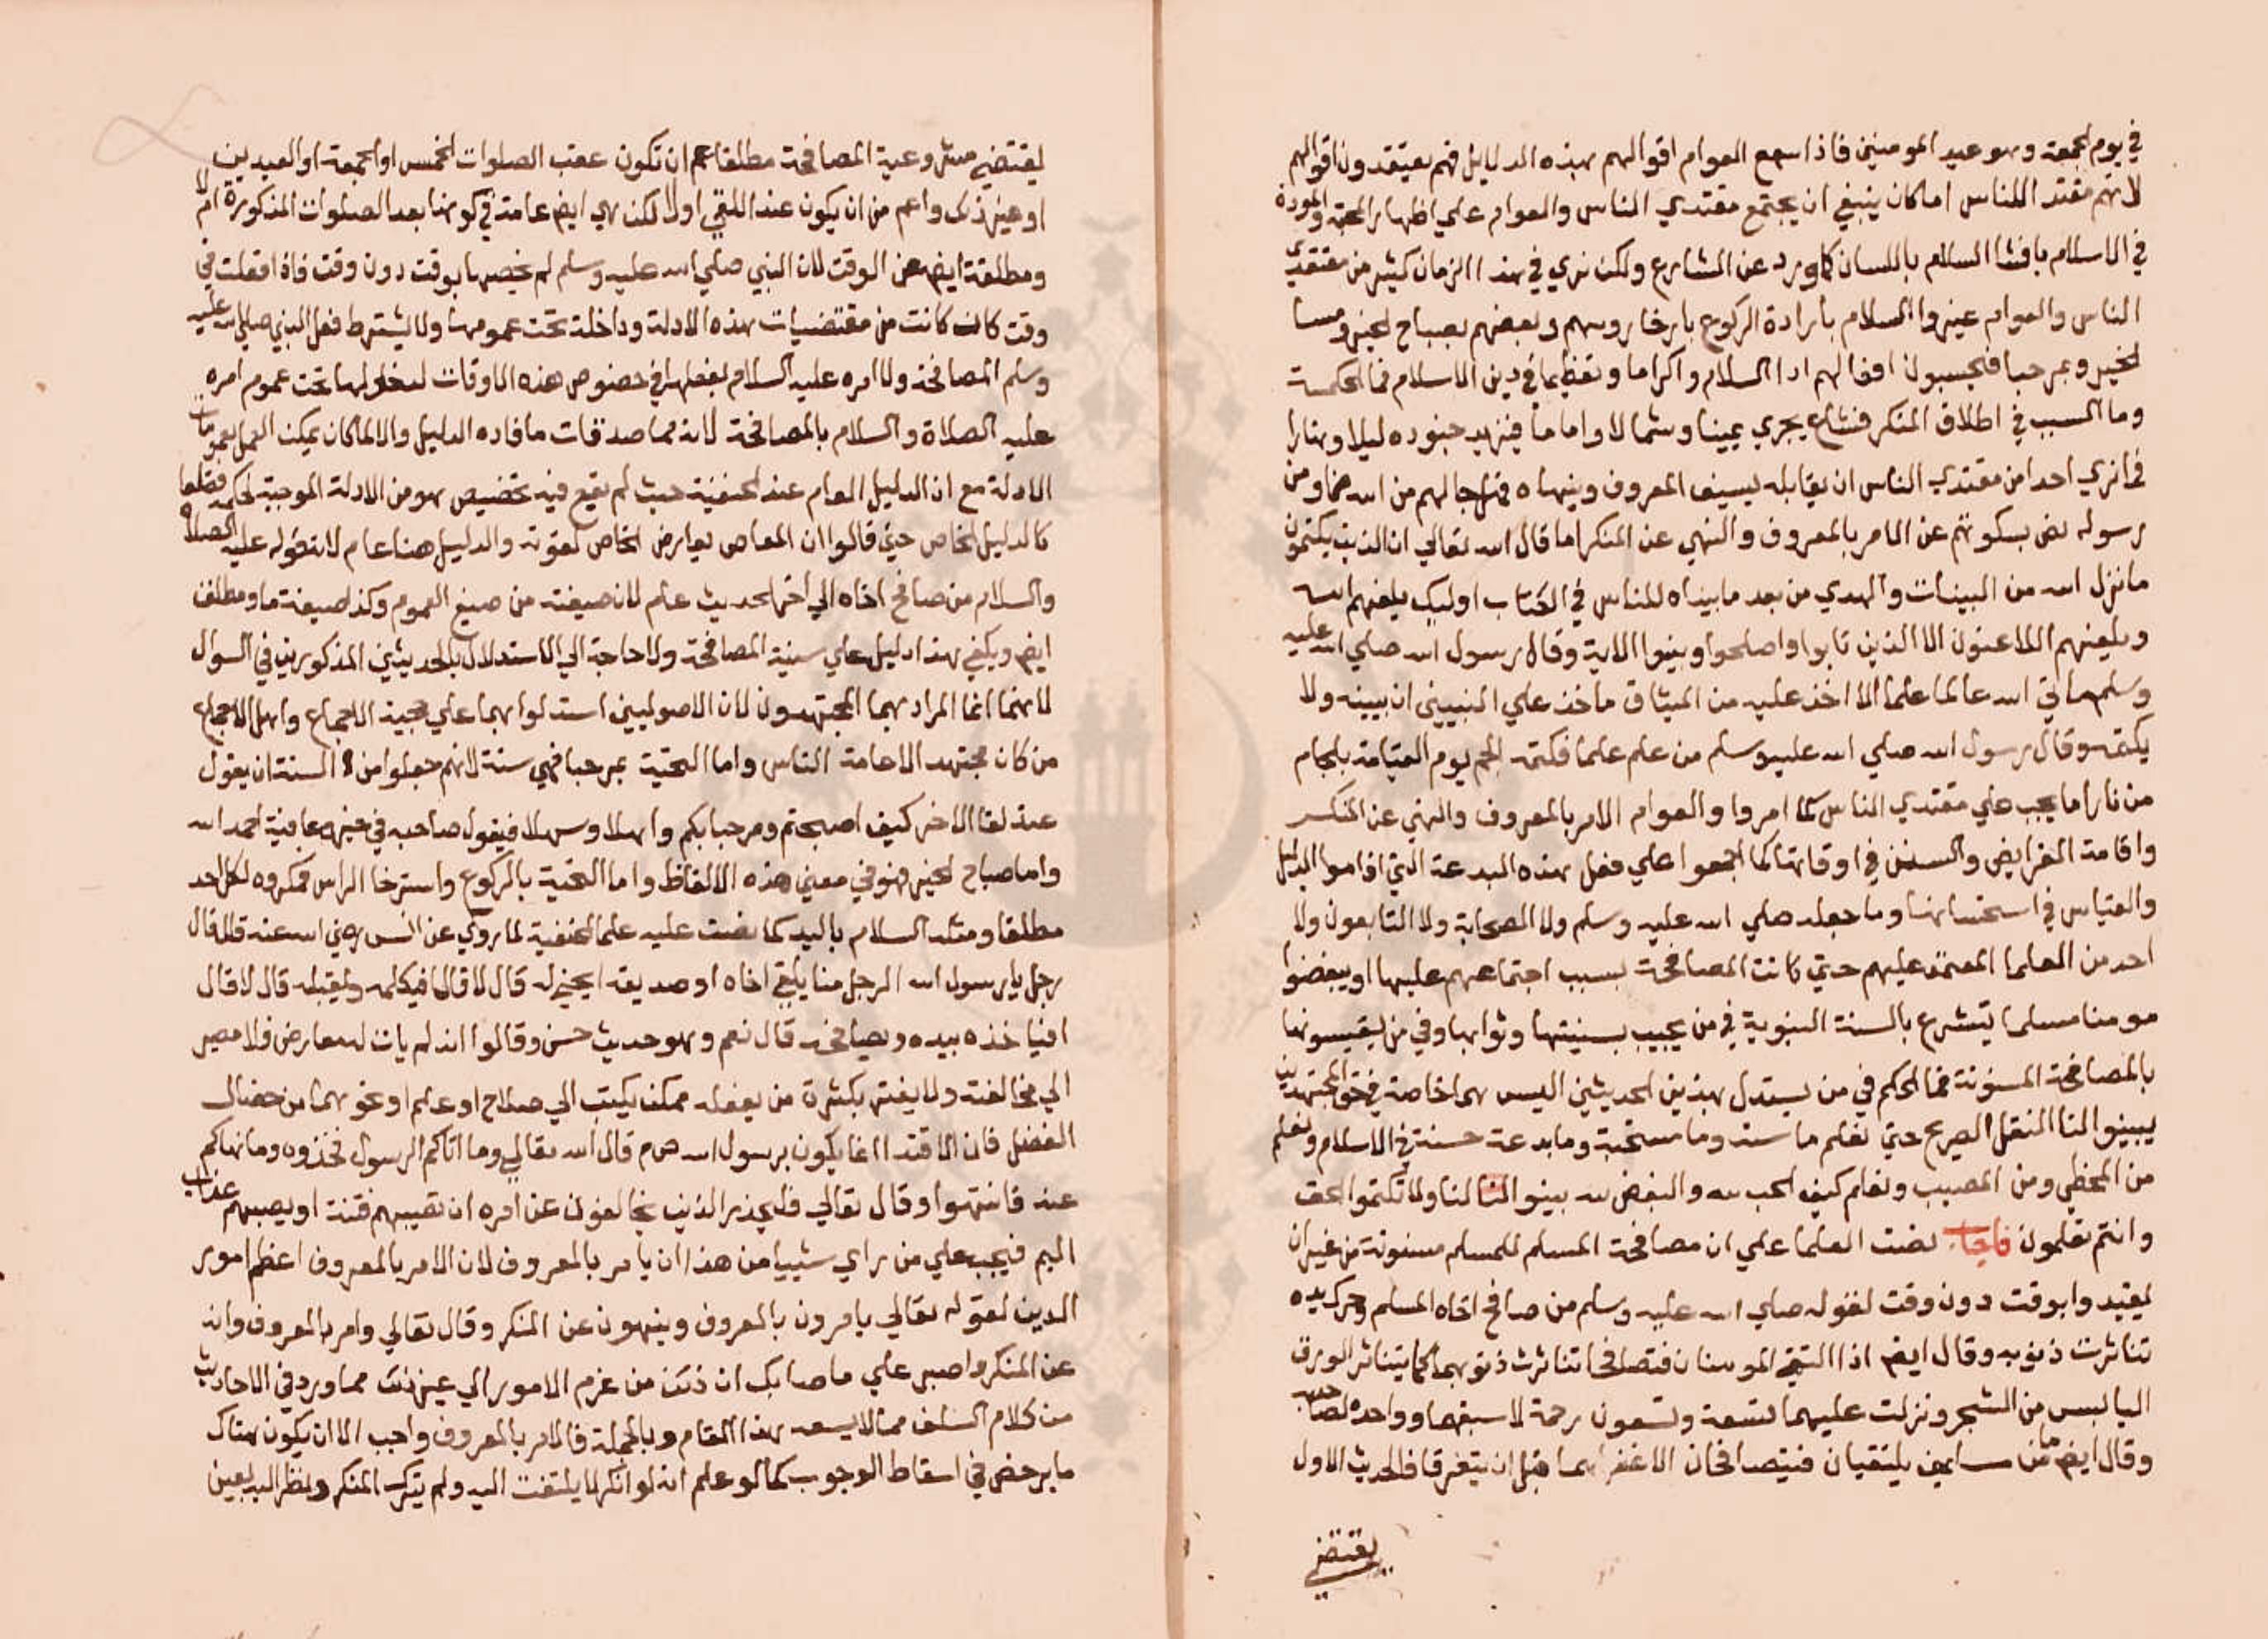 في يوم الجمعة وهو عيد المومنين فاذا سمع العوام اقوالهم بهذه الدلايل فهم يعتقدون اقوالهم
لانهم مقتدا للناس اما كان ينبغي ان يجتمع مقتدي الناس والعوام علي اظهار المحبة والمودة
في الاسلام بافشا السلام باللسان كما ورد عن الشارع ولكن نري في هذا الزمان كثير من مقتدي
الناس والعوام غيروا السلام بارادة الركوع بارخا روسهم وبعضهم بصباح الخير ومسا
الخير وبمرحبا فيحسبون افعالهم ادا السلام واكراما وتعظيما في دين الاسلام فما الحكمة
وما السبب في اطلاق المنكر فشاع يجري يمينا وشمالا واماما فيزيد جنوده ليلا ونهارا
فما نري احدا من مقتدي الناس ان يقابله بسيف المعروف وينهاه فهل جا لهم من الله خفا ومن
رسوله نص بسكوتهم عن الامر بالمعروف والنهي عن المنكر اما قال الله تعالي ان الذين يكتمون
ما نزل الله من البينات والهدي من بعد ما بيناه للناس في الكتاب اوليك يلعنهم الله
ويلعنهم اللاعنون الا الذين تابوا واصلحوا وبينوا الاية وقال رسول الله صلي الله عليه
وسلم ما اتي الله عالما علما الا اخذ عليه من الميثاق ما اخذ علي النبيين ان يبينه ولا
يكتمه وقال رسول الله صلي الله عليه وسلم من علم علما فكتمه الجم يوم القيامة بلجام
من نار اما يجب علي مقتدي الناس كما امروا والعوام الامر بالمعروف والنهي عن المنكر
واقامة الفرايض والسنن في اوقاتها كما اجمعوا علي فعل هذه البدعة التي اقاموا الدليل
والقياس في استحسانها وما جعله صلي الله عليه وسلم ولا الصحابة ولا التابعون ولا
احد من العلما المعتمد عليهم حتي كانت المصافحة بسبب اجتماعهم عليها او يبغضوا
مومنا مسلما يتشرع بالسنة النبوية في من يجيب بسنيتها وثوابها وفي من يقيسونها
بالمصافحة المسنونة فما الحكم في من يستدل بهذين الحديثين اليس هما خاصة في حق المجتهدين
يبينوا لنا النقل الصريح حتي نعلم ما سنة وما مستحبة وما بدعة حسنة في الاسلام ونعلم
من المخطي ومن المصيب ونعلم كيف الحب لله والبغض لله بينوا لنا ولا تكتموا الحق
وانتم تعلمون فاجاب نصت العلما علي ان مصافحة المسلم للمسلم مسنونة من غير ان
يقيدوا بوقت دون وقت لقوله صلي الله عليه وسلم من صافح اخاه المسلم وحرك يده
تناثرت ذنوبه وقال ايضا اذا التقي المومنان فتصافحا تناثرت ذنوبهما كما يتناثر الورق
اليابس من الشجر ونزلت عليهما تسعة وتسعون رحمة لاسبقهما وواحدة لصاحبه
وقال ايضا ما من مسلمين يلتقيان فيتصافحان الا غفر لهما قبل ان يتفرقا فالحديث الاول
يقتضي
يقتضي مشروعية المصافحة مطلقا اعم ان تكون عقب الصلوات الخمس او الجمعة او العيدين
او غير ذلك واعم من ان يكون عند اللقي او لا لكن هي ايضا عامة في كونها بعد الصلوات المذكورة ام لا
ومطلقة ايضا عن الوقت لان النبي صلي الله عليه وسلم لم يخصها بوقت دون وقت فاذا فعلت في
وقت كان كانت من مقتضيات هذه الادلة وداخلة تحت عمومها ولا يشترط فعل النبي صلي الله عليه
وسلم المصافحة ولا امره عليه السلام بفعلها في خصوص هذه الاوقات لدخولها تحت عموم امره
عليه الصلاة والسلام بالمصافحة لانه مما صدقات ما افاده الدليل والا لما كان يمكن العمل بعمومات
الادلة مع ان الدليل العام عند الحنفية حيث لم يقع فيه تخصيص هو من الادلة الموجبة للحكم قطعا
كالدليل الخاص حتي قالوا ان العام يعارض الخاص لقوته والدليل هنا عام لان قوله عليه الصلاة
والسلام من صافح اخاه الي اخر الحديث عام لان صيغته من صيغ العموم وكذا صيغة ما ومطلق
ايضا ويكفي بهذا دليل علي سنية المصافحة ولا حاجة الي الاستدلال بالحديثين المذكورين في السوال
لانهما انما المراد بهما المجتهدون لان الاصوليين استدلوا بهما علي حجية الاجماع واهل الاجماع
من كان مجتهدا لا عامة الناس واما التحية بمرحبا فهي سنة لانهم جعلوا من السنة ان يقول
عند لقا الاخر كيف اصبحتم ومرحبا بكم واهلا وسهلا فيقول صاحبه في خير وعافية احمد الله
واما صباح الخير فهو في معني هذه الالفاظ واما التحية بالركوع واسترخا الراس فمكروه لكل احد
مطلقا ومثله السلام باليد كما نصت عليه علما الحنفية لما روي عن انس رضي الله عنه قال قال
رجل يا رسول الله الرجل منا يلقي اخاه او صديقه اينحني له قال لا قال افيكلمه ويقبله قال لا قال
افياخذه بيده ويصافحه قال نعم وهو حديث حسن وقالوا انه لم يات له معارض فلا مصير
الي مخالفته ولا يغتر بكثرة من يفعله ممكن يكتب الي صلاح او علم او نحوهما من خصال
الفضل فان الاقتدا انما يكون برسول الله صم قال الله تعالي وما اتاكم الرسول فخذوه وما نهاكم
عنه فانتهوا وقال تعالي فليحذر الذين يخالفون عن امره ان تصيبهم فتنة او يصيبهم عذاب
اليم فيجب علي من راي شييا من هذا ان يامر بالمعروف لان الامر بالمعروف اعظم امور
الدين لقوله تعالي يامرون بالمعروف وينهون عن المنكر وقال تعالي وامر بالمعروف وانه
عن المنكر واصبر علي ما صابك ان ذلك من عزم الامور الي غير ذلك مما ورد في الاحاديث
من كلام السلف مما لا يسعه هذا المقام وبالجملة فالامر بالمعروف واجب الا ان يكون هناك
ما يرخص في اسقاط الوجوب كما لو علم انه لو انكر لا يلتفت اليه ولم يترك المنكر ونظر اليه بعين